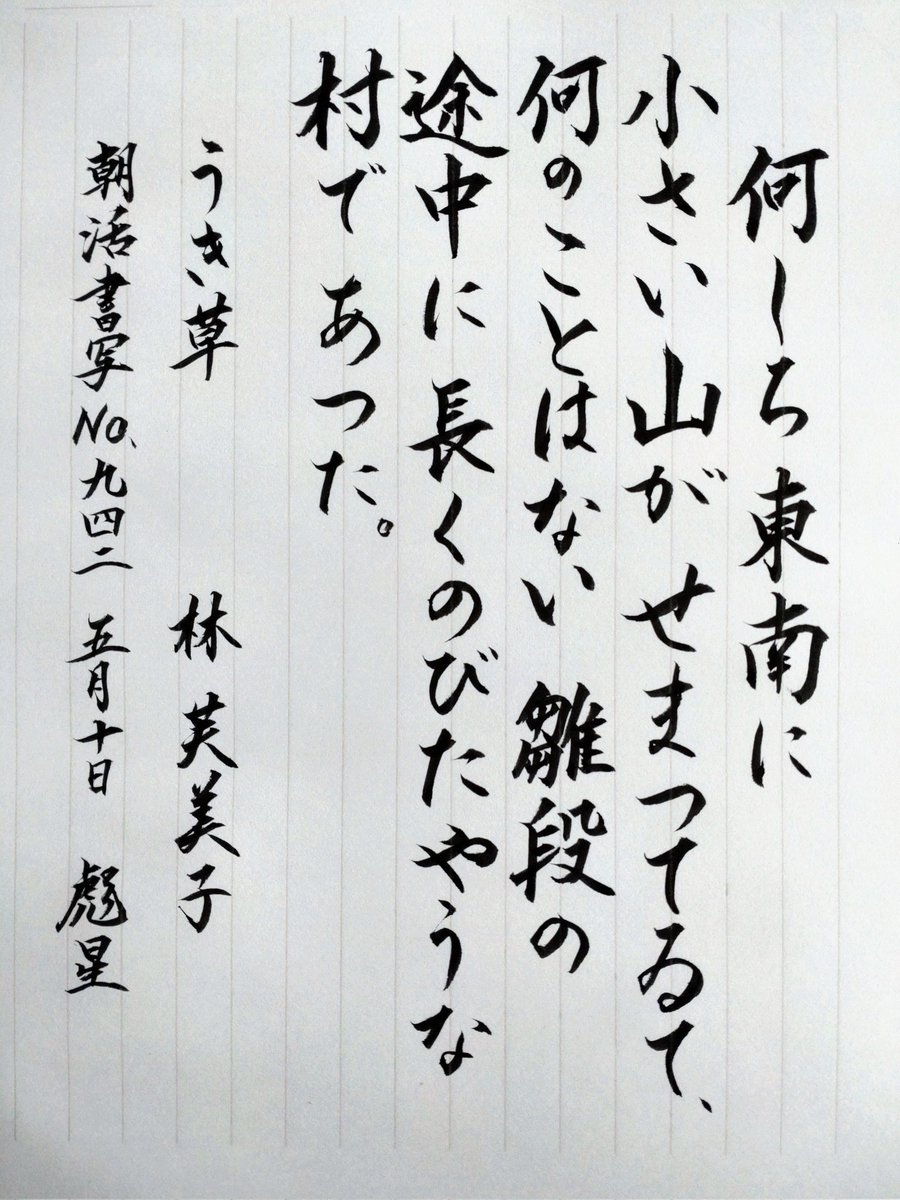 何しろ東南に
小さい山がせまつてゐて、
何のことはない雛段の
途中に長くのびたやうな
村であつた。
うき草 林芙美子
朝活書写No.九四二 五月十日 彪星